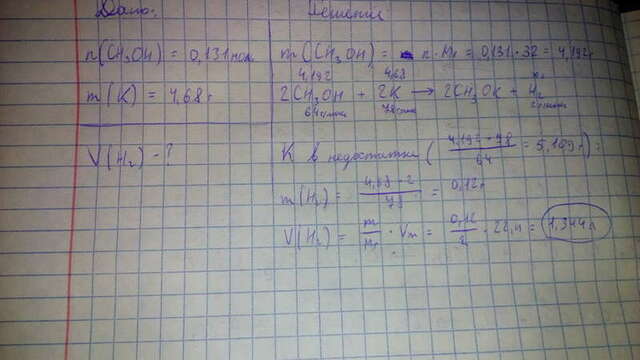 Дано:
n(CH₃OH) = 0,131 мол
m(K) = 4,68 г
V(H₂) - ?
Решение
m(CH₃OH) = n · Mr = 0,131 · 32 = 4,192 г
4,192 4,68 x
2CH₃OH + 2K → 2CH₃OK + H₂
64 г/моль 78 г/моль 2 г/моль
K в недостатке (4,192 · 78 / 64 = 5,109 г) :
m(H₂) = 4,68 · 2 / 78 = 0,12 г
V(H₂) = m / Mr · Vm = 0,12 / 2 · 22,4 = 1,344 л